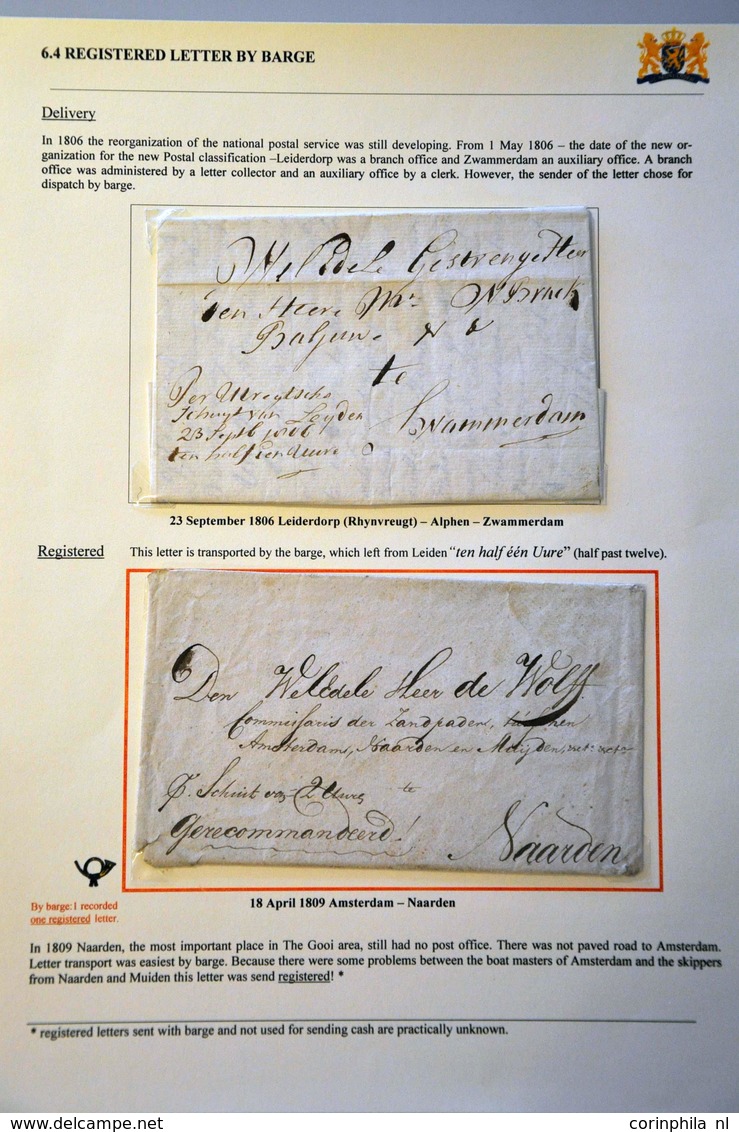 6.4 REGISTERED LETTER BY BARGE
Delivery
In 1806 the reorganization of the national postal service was still developing. From 1 May 1806 – the date of the new or-
ganization for the new Postal classification –Leiderdorp was a branch office and Zwammerdam an auxiliary office. A branch
office was administered by a letter collector and an auxiliary office by a clerk. However, the sender of the letter chose for
dispatch by barge.
Wel Edele Gestrenge Heer
den Heere Mr. Brack
Baljuw
te
Per Utregtsche
Schuyt van Leyden
Zwammerdam
23 Septb 1806
ten half een Uure
23 September 1806 Leiderdorp (Rhynvreugt) – Alphen – Zwammerdam
Registered
This letter is transported by the barge, which left from Leiden "ten half één Uure" (half past twelve).
Den WelEdele Heer de Wolff
Commissaris der Zandpaden, tusschen
Amsterdam, Naarden en Muijden,
P. Schuit van 2 Uure te
Gerecommandeerd!
Naarden
By barge:1 recorded
one registered letter.
18 April 1809 Amsterdam – Naarden
In 1809 Naarden, the most important place in The Gooi area, still had no post office. There was not paved road to Amsterdam.
Letter transport was easiest by barge. Because there were some problems between the boat masters of Amsterdam and the skippers
from Naarden and Muiden this letter was send registered! *
* registered letters sent with barge and not used for sending cash are practically unknown.
corinphila nl